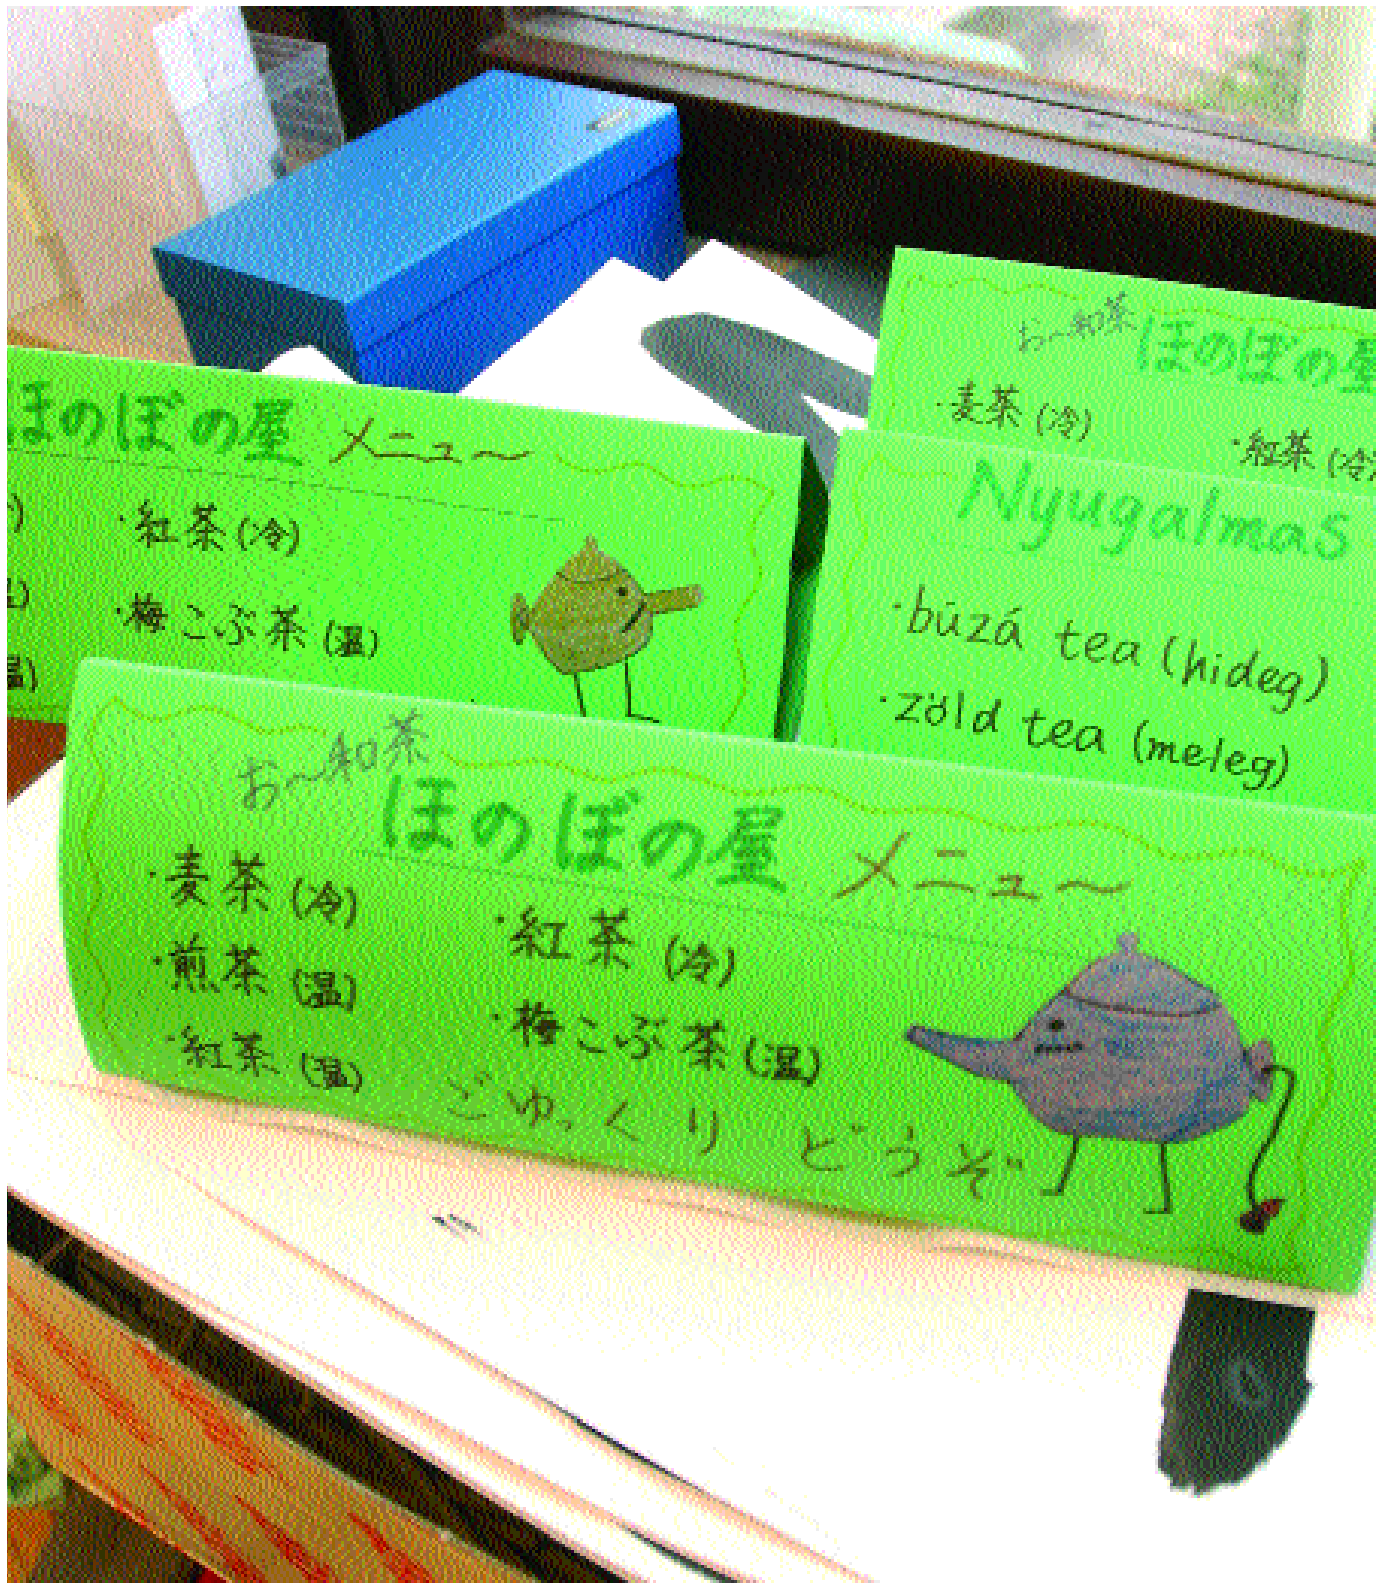 お〜和茶
ほのぼの屋
・麦茶(冷)
・紅茶(冷
ほのぼの屋 メニュ〜
・紅茶(冷)
・梅こぶ茶(温)
温)
Nyugalmas
・búzá tea (hideg)
・zöld tea (meleg)
お〜和茶
ほのぼの屋 メニュ〜
・麦茶(冷) ・紅茶(冷)
・煎茶(温) ・梅こぶ茶(温)
・紅茶(温)
ごゆっくり どうぞ